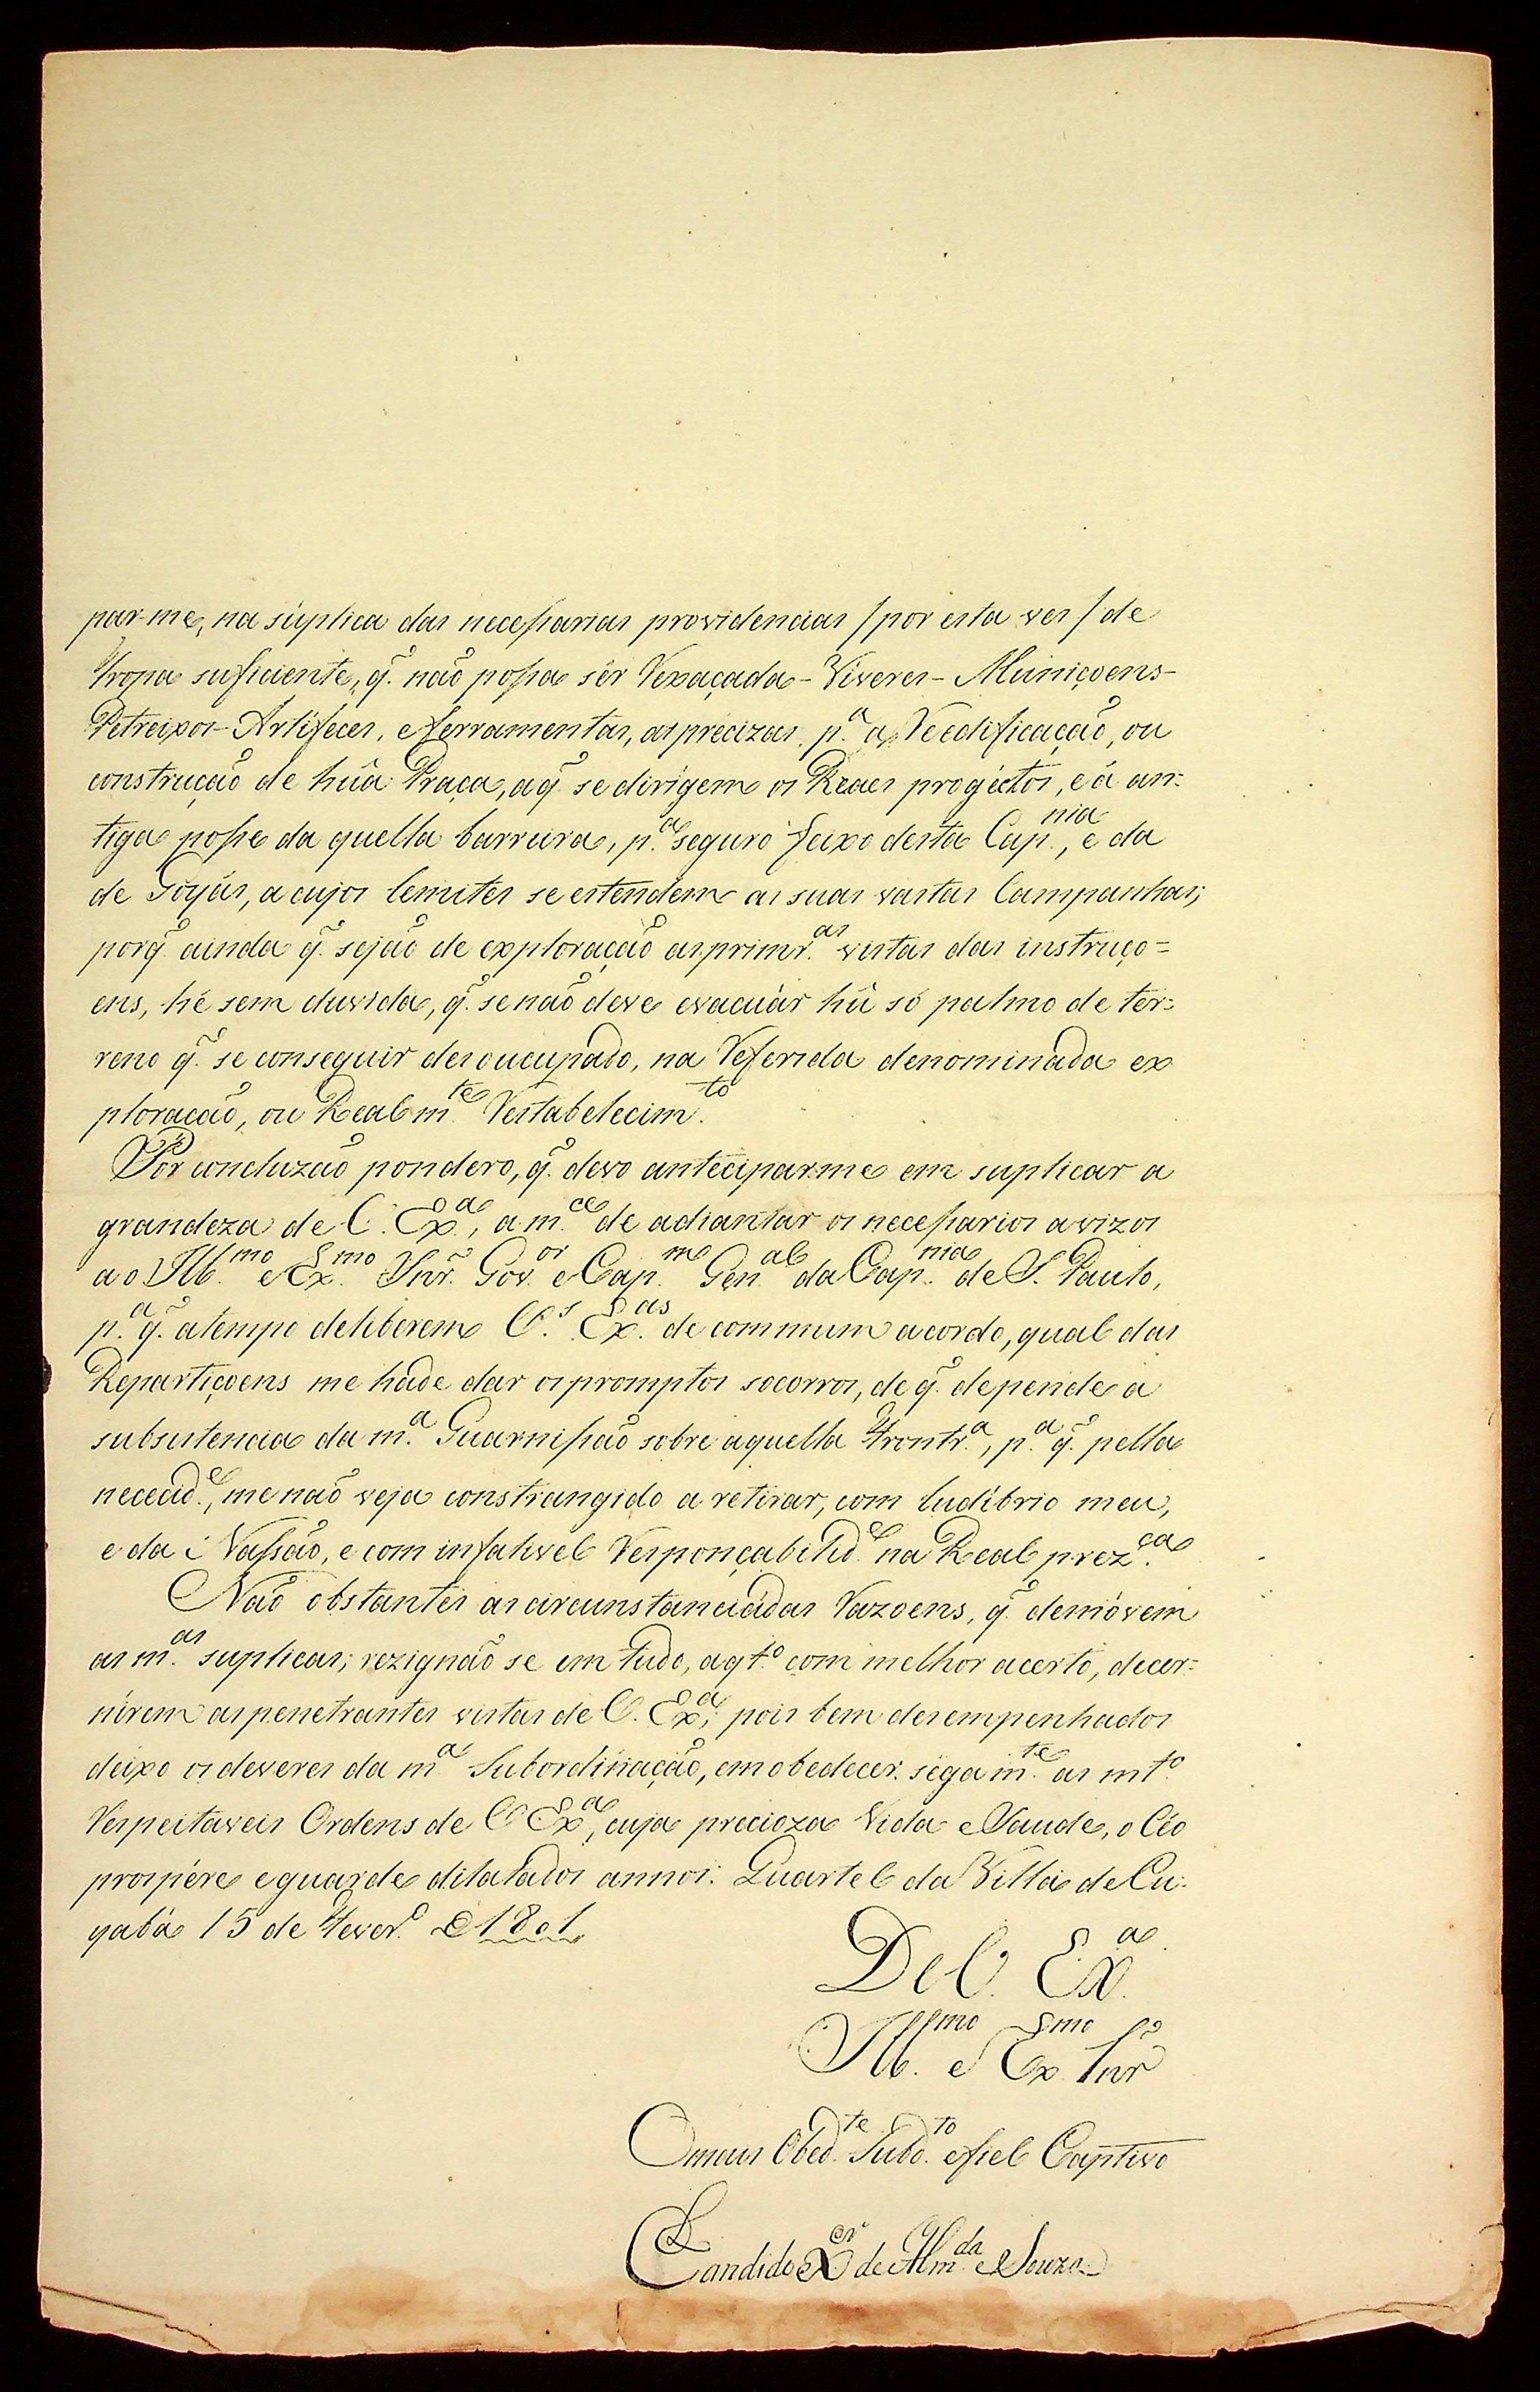 par-me, na súplica das necessarias providencias / por esta ves / de
tropa suficiente, q̃. não possa sêr rexaçada - Viveres - Muniçoens -
Petreixos - Artifeces, e ferramentas, as precizas p.ª a reedificação, ou
construção de hũa Praça, a q̃ se dirigem os Reaes progéctos, e á an=
tiga posse da quella barrura, p.ª seguro feixo desta Cap.nia, e da
de Goyás, a cujos lemites se estendem as suas vastas Campanhas;
porq̃ ainda q̃. sejão de exploração as primr.as vistas das instruço=
ens, hé sem duvida, q̃. se não deve evacuár hũ só palmo de ter=
reno q̃. se conseguir desoucupado, na referida denominada ex
ploração, ou Realm.te restabelecim.to
Por concluzão pondero, q̃. devo anteciparme em suplicar a
grandeza de V. Ex.ª, a m.ce de adiantar os necessarios avizos
ao Ill.mo e Ex.mo Snr̃. Gov.or e Cap.m Gen.al da Cap.nia de S. Paulo,
p.ª q̃. a tempo deliberem V.s Ex.as de commum acordo, qual das
Repartiçoens me hade dar os promptos socorros, de q̃. depende a
subsistencia da m.ª Guarnissão sobre aquella Frontr.ª, p.ª q̃. pella
nececid.e, me não veja constrangido a retirar, com ludíbrio meu,
e da Nassão, e com infalivel responçabilid.e na Real prez.ça
Não obstantes as circunstanciádas razoens, q̃. demóvem
as m.as suplicas; rezignão se em tudo, a q.to com melhor acerto, decer=
nirem as penetrantes vistas de V. Ex.ª; pois bem desempenhados
deixo os deveres da m.ª Subordinação, em obedecer segam.te as mt.o
respeitaveis Ordens de V Ex.ª, cuja precioza vida e Saude, o Céo
prospére e guarde dilatados annos. Quartel da Villa de Cu-
yabá 15 de Fever.o de 1801
De V. Ex.ª
Ill.mo e Ex.mo Snr̃
O mais Obed.te Subd.to e fiel Captivo
Candido X.er de Alm.da e Souza